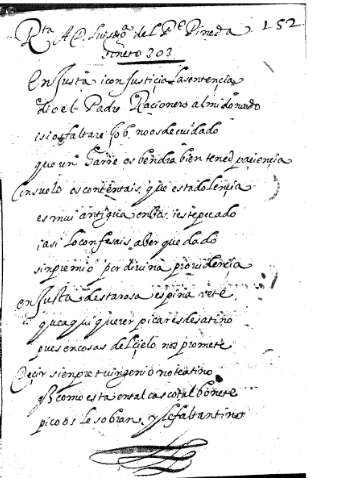 R.ta A D. Luis de G.a del P.e Pineda 152
soneto 303
en Justa i con justicia la sentencia
dio el Padre Racionero al mi donado
i si os faltare Job, no os de cuidado
que un os bendra bien tened paciencia
Consuelo os contentais, que esta dolencia
es mui antigua en bos, i este pecado
i asi lo confesais, aber quedado
sin premio por divina providencia
en Justa desta rosa espina vete
que aqui querer picar es desatino
pues en cosas del cielo nos promete
Decir sienpre tu ingenio no te atino
como esta en tal casco tal bonete
picos le sobran, y le faltan tino